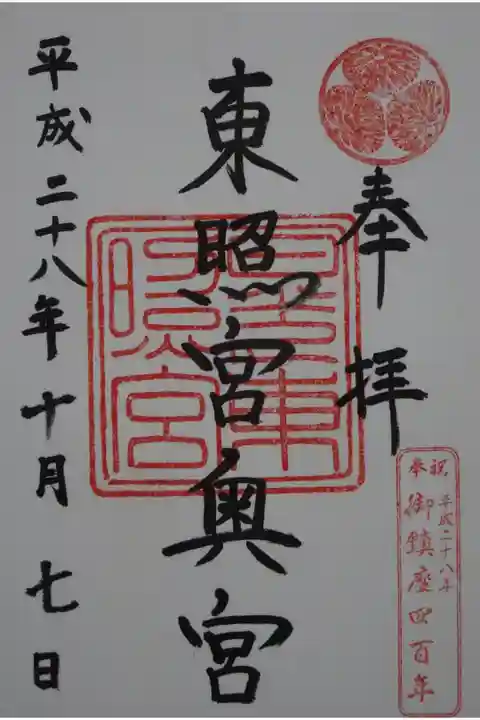 奉拝
奉祝
平成二十八年
御鎮座四百年
東照宮奥宮
平成二十八年十月七日